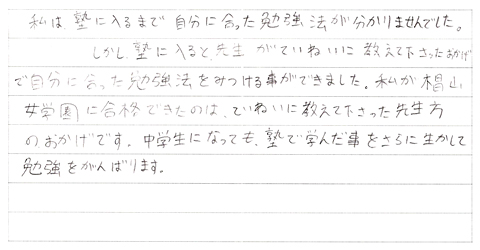 私は、塾に入るまで自分に合った勉強法が分かりませんでした。
しかし、塾に入ると、先生がていねいに教えて下さったおかげ
で自分に合った勉強法をみつける事ができました。私が椙山
女学園に合格できたのは、ていねいに教えて下さった先生方
のおかげです。中学生になっても、塾で学んだ事をさらに生かして
勉強をがんばります。